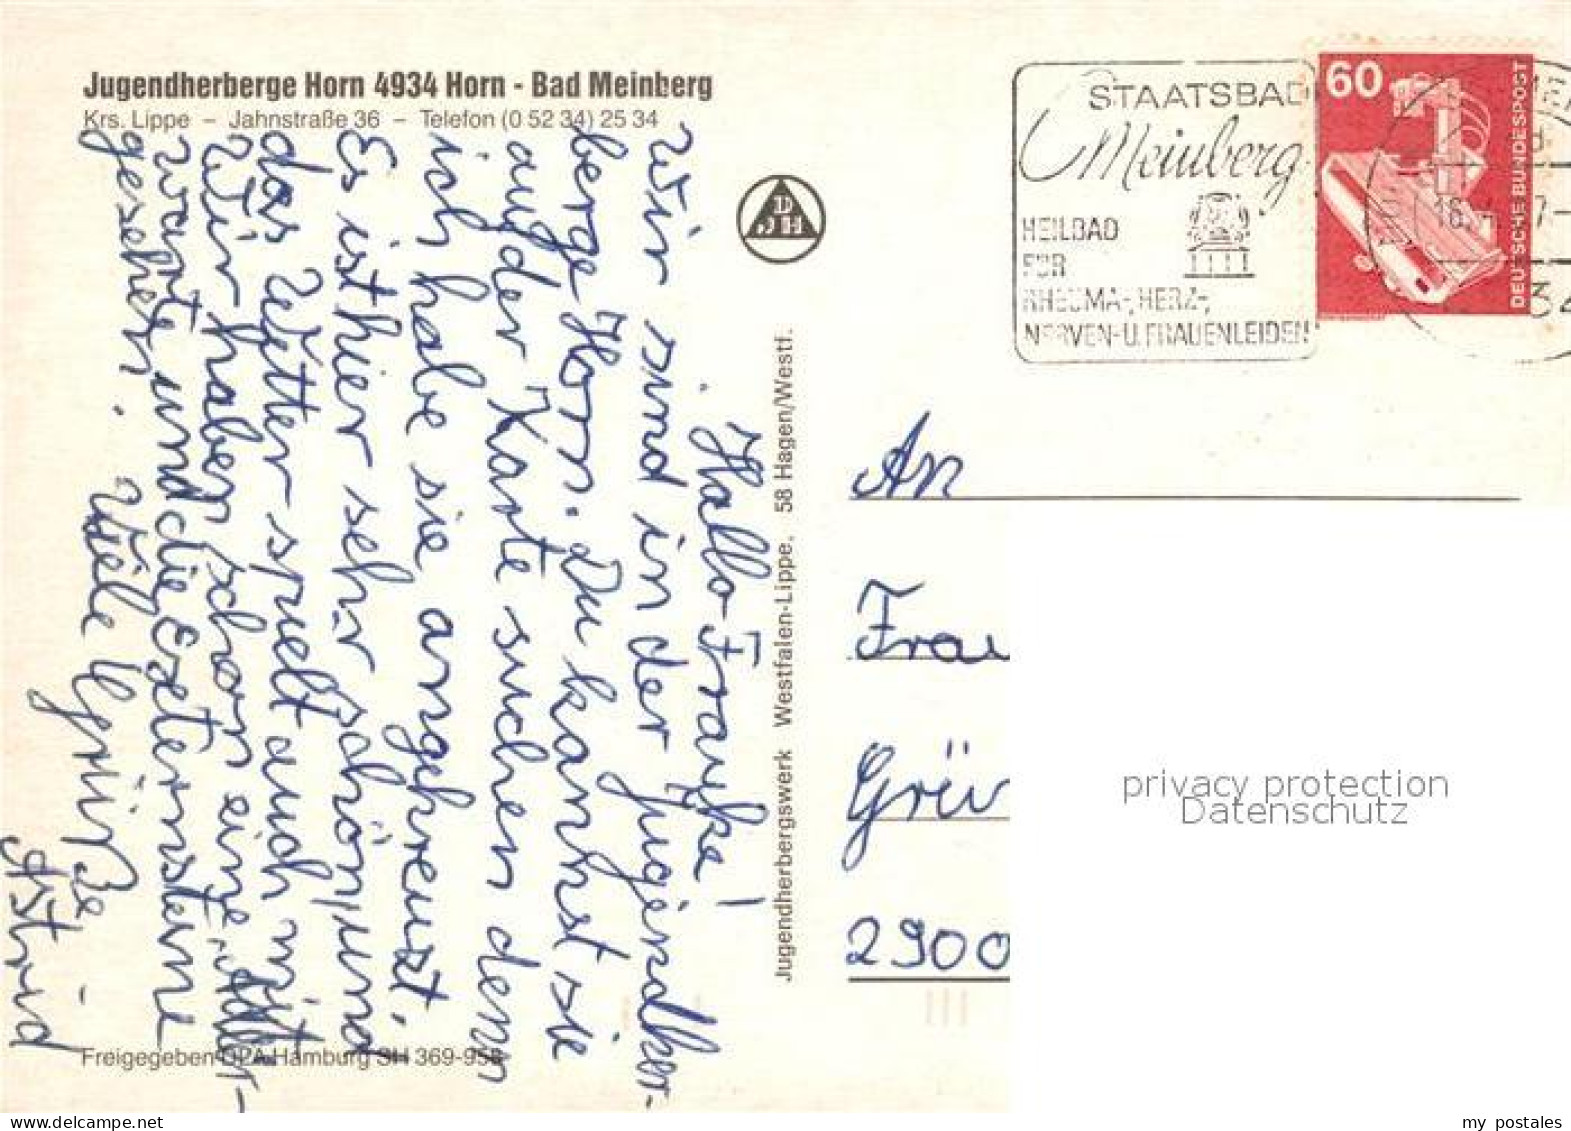 Jugendherberge Horn 4934 Horn - Bad Meinberg
Krs. Lippe – Jahnstraße 36 – Telefon (0 52 34) 25 34
Hallo Frauke!
Wir sind in der Jugendher-
berge Horn. Du kannst sie
auf der Karte suchen denn
ich habe sie angekreuzt.
Es ist hier sehr schön, und
das Wetter spielt auch mit
Wir haben schon eine
warte und die Externsteine
gesehen.
Viele Grüße
Astrid
Freigegeben DPA Hamburg SH 369-958
Jugendherbergswerk Westfalen-Lippe, 58 Hagen/Westf.
DJH
STAATSBAD
Meinberg
HEILBAD
FÜR
RHEUMA-, HERZ-,
NERVEN-U. FRAUENLEIDEN
60
DEUTSCHE BUNDESPOST
An
Frau
Grü
2900
privacy protection
Datenschutz
my_postales